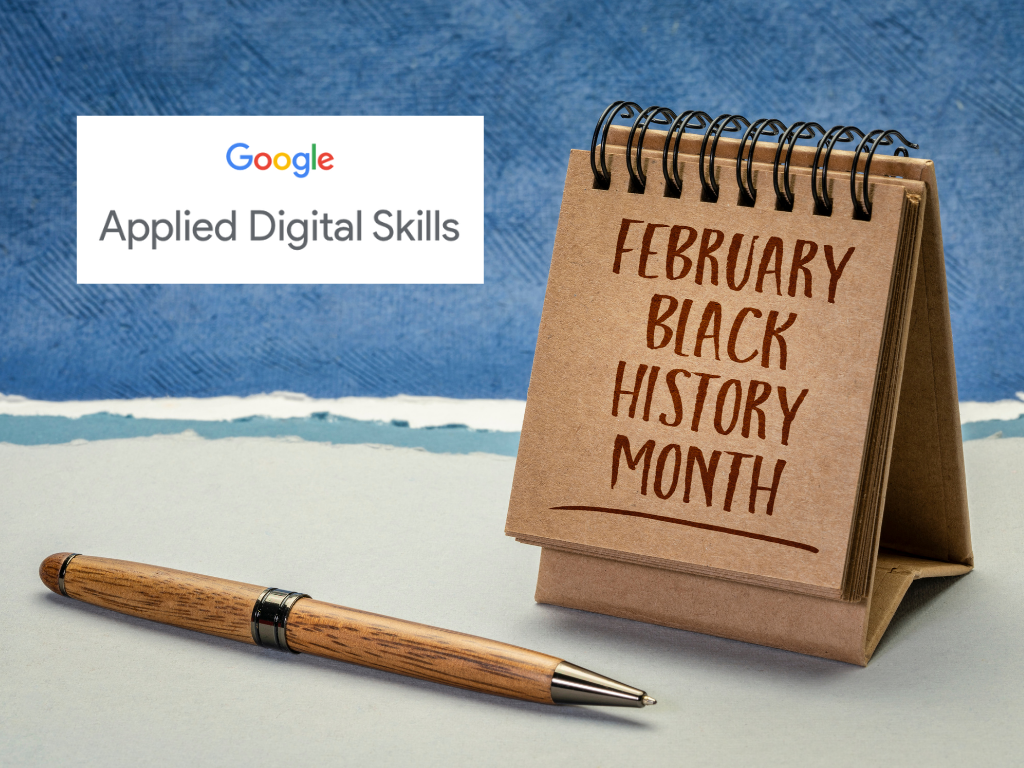 Google
Applied Digital Skills
FEBRUARY
BLACK
HISTORY
MONTH